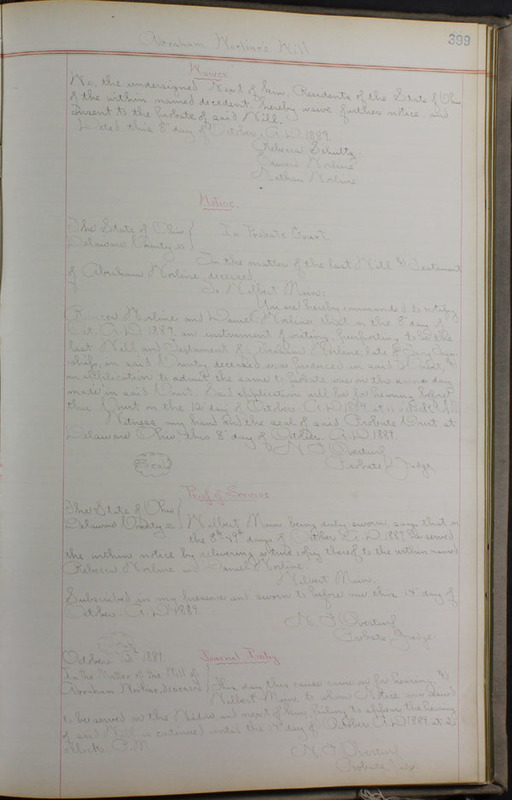 399
Abraham Norlines Will
Waiver
We, the undersigned Next of Kin, Residents of the State of Ohio
of the within named decedent, hereby waive further notice and
consent to the Probate of said Will,
Dated this 8 day of October, A.D 1889.
Rebecca Schultz
Norline
Nathan Norline
Notice.
The State of Ohio
Delaware County ss In Probate Court.
In the matter of the last Will & Testament
of Abraham Norline, deceased.
To Milbert Main;
You are hereby commanded to notify
Norline and Daniel Norline that on the 8 day of
Oct. A.D 1889, an instrument of writing, purporting to be the
last Will and Testament of Abraham Norline, late of
ship, in said County deceased was produced in said Court, &
an application to admit the same to Probate was on the same day
made in said Court. Said application will be for hearing before
this Court on the 12 day of October A.D 1889 at
Witness my hand and the seal of said Probate Court at
Delaware Ohio this 8 day of October, A.D 1889.
Seal
Probate Judge
Proof of Service
The State of Ohio
Delaware County ss Milbert Main being duly sworn, says that on
the 8th & 9th days of October A.D 1889 he served
the within notice by delivering a true copy thereof to the within named
Rebecca Norline and Norline.
Milbert Main.
Subscribed in my presence and sworn to before me this day of
October A.D 1889
Probate Judge
October 12 1889. Journal Entry
In the Matter of the Will of
Abraham Norline, deceased This day this cause came on for hearing, &
Milbert Main to whom Notice was issued
to be served on the Widow and next of kin failing to appear the hearing
of said Will is continued until the day of October A.D 1889 at 2
O'clock P.M.
Probate Judge